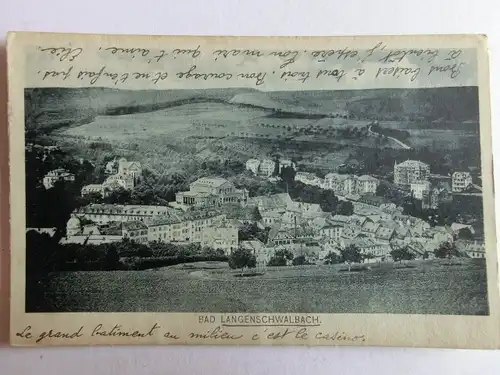 Bons baisers à tous trois. Bon courage et ne t'enfais pas.
à bientôt j'espère. Ton mari qui t'aime. Elie
BAD LANGENSCHWALBACH.
Le grand batiment au milieu c'est le casino